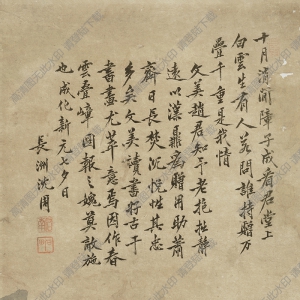 十月清閒陳子成看君堂上
白雲生有人若問誰持贈万
疊千重是我情
文美趙君知予老拖拙辭
遠以漢鼎宏贈用助蕭
齋日長焚沉悅性其忠
多矣文美讀書好古于
書畫尤萃意焉因作春
雲疊嶂圖報之媿莫敵施
也成化新元七夕日
長洲沈周